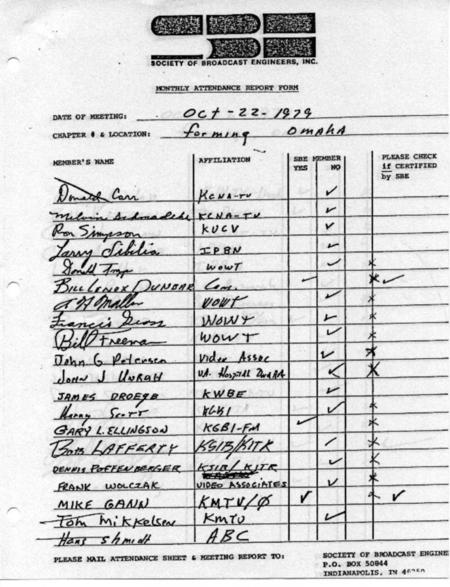 SBE
SOCIETY OF BROADCAST ENGINEERS, INC.
MONTHLY ATTENDANCE REPORT FORM
DATE OF MEETING: Oct-22-1979
CHAPTER # & LOCATION: forming OMAHA
MEMBER'S NAME AFFILIATION SBE MEMBER YES NO PLEASE CHECK if CERTIFIED by SBE
Donald Carr KCNA-TV ✓
Melvin KCNA-TV ✓
Ron Simpson KUCV ✓
Larry Sibilia IPBN ✓
Donald WOWT ✓ x
BILL LENOX DUNBAR Cons. ✓ x ✓
WOWT ✓ x
Francis WOWT ✓ x
Bill Freeman WOWT ✓ x
John G Petersen Video Assoc ✓ x
JOHN J UNRAH VA. Hospital Omaha ✓ x
JAMES DROEGE KWBE ✓
Harry Scott KGBI ✓ x
GARY L. ELLINGSON KGBI-FM ✓ x
Bob LAFFERTY KSIB/KITR ✓ x
DENNIS POFFENBERGER KSIB/KITR ✓ x
FRANK WOLCZAK VIDEO ASSOCIATES ✓ x
MIKE GANN KMTV/Ø ✓ x ✓
Tom Mikkelsen KMTV ✓
Hans Shmidt ABC
PLEASE MAIL ATTENDANCE SHEET & MEETING REPORT TO: SOCIETY OF BROADCAST ENGINE
P.O. BOX 50844
INDIANAPOLIS, IN 46250